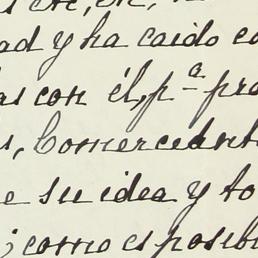 ad y ha caido co
as con él, pª pro
s, Comerciant
e su idea y to
; como es posib